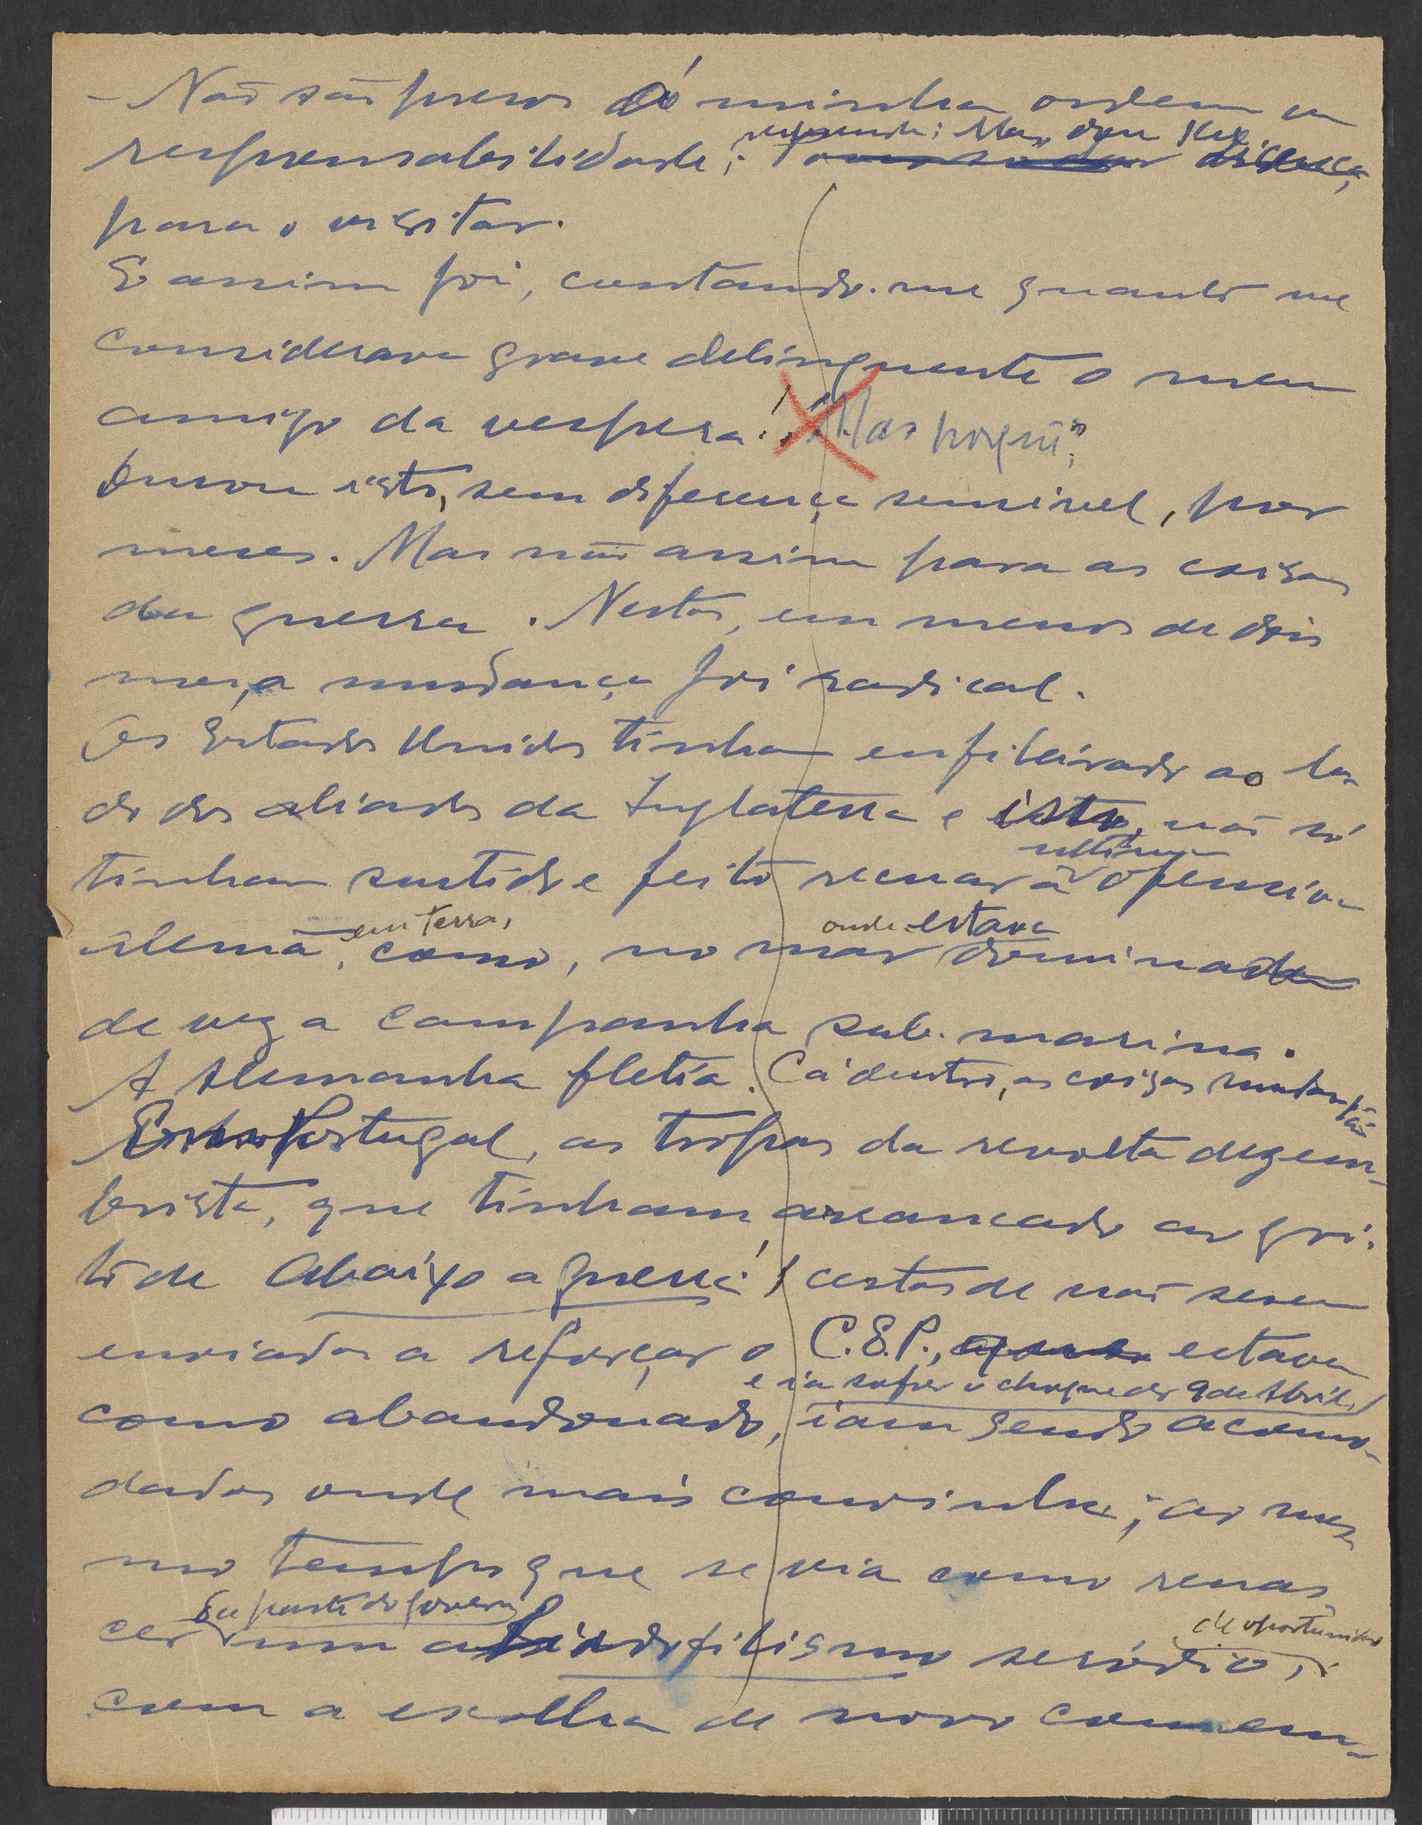 - Não são presos à minha ordem ou
responsabilidade; responde: Mas dou licença,
para o visitar.
E assim foi, contando-me quanto me
considerava grave delinquente o meu
amigo da vespera! "Mas porquê"
Durou isto, sem diferença sensivel, por
meses. Mas não assim para as coisas
da guerra. Nestas, em menos de dois
meses, a mudança foi radical.
Os Estados Unidos tinham enfileirado ao la-
do dos aliados da Inglaterra e isto, não só
tinham sustido e feito recuar a ultima ofensiva
alemã, em terra, como, no mar onde estava dominada
de vez a campanha sub-marina.
A Alemanha fletia. Cá dentro, as coisas mudam
Portugal, as tropas da revolta dezem-
brista, que tinham arrancado ao gri-
to de Abaixo a guerra! certas de não serem
enviadas a reforçar o C.E.P., estava
como abandonado, e ia sofrer o choque do 9 de Abril,
iam sendo acomo-
dadas onde mais convinha; ao mes
mo tempo que se via como renas
cer da parte do governo um aliadofilismo serôdio, de oportunidade
com a escolha de novo comem-